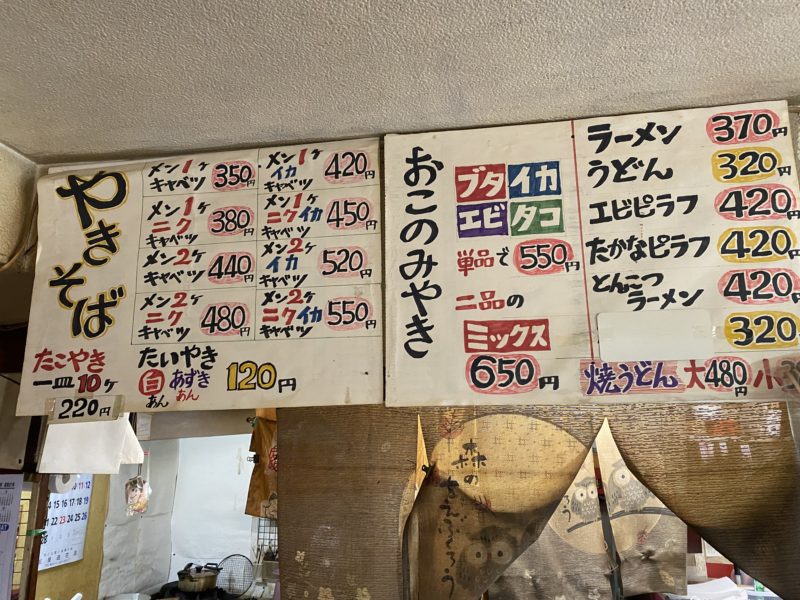 やきそば
メン1ケ
キャベツ
350円
メン1ケ
イカ
キャベツ
420円
メン1ケ
ニク
キャベツ
380円
メン1ケ
ニクイカ
キャベツ
450円
メン2ケ
キャベツ
440円
メン2ケ
イカ
キャベツ
520円
メン2ケ
ニク
キャベツ
480円
メン2ケ
ニクイカ
キャベツ
550円
たこやき
一皿10ヶ
220円
たいやき
白あん
あずきあん
120円
おこのみやき
ブタ イカ
エビ タコ
単品で 550円
二品の
ミックス
650円
ラーメン 370円
うどん 320円
エビピラフ 420円
たかなピラフ 420円
とんこつ
ラーメン
420円
320円
焼うどん 大480円 小
森の
ふくろう